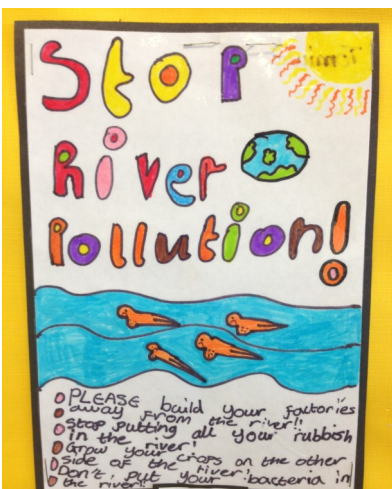 Stop
River
Pollution!
PLEASE build your factories
away from the river!!
Stop putting all your rubbish
in the river!
Grow your crops on the other
side of the river!
Don't put your bacteria in
the river!!